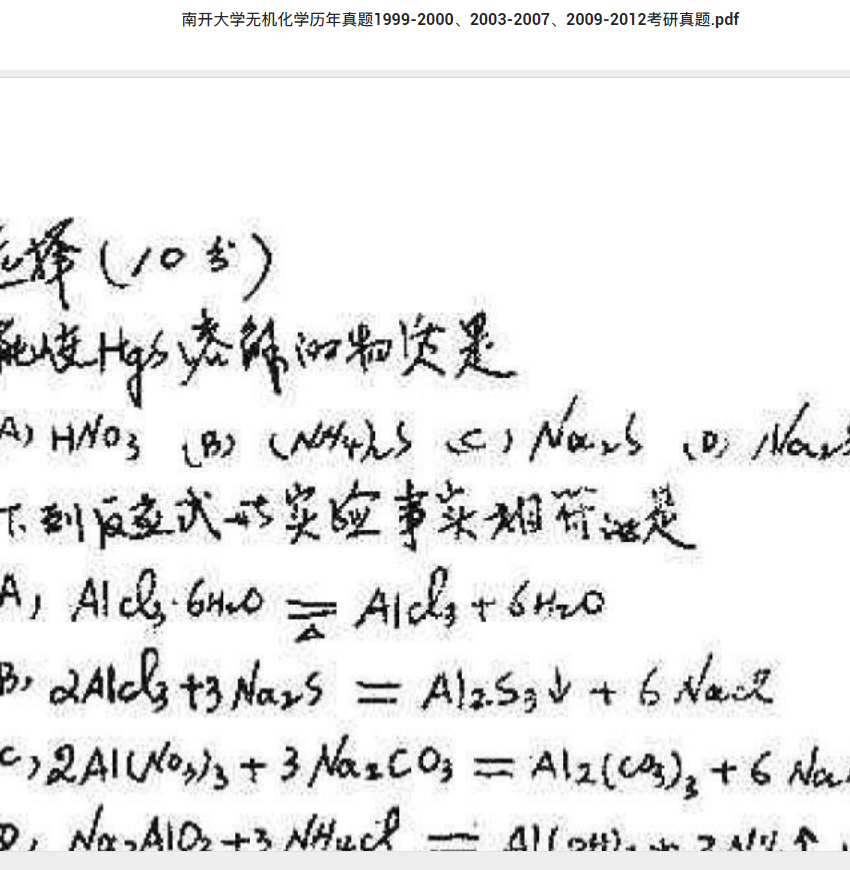 南开大学无机化学历年真题1999-2000、2003-2007、2009-2012考研真题.pdf
选择(10分)
能使HgS溶解的物质是
A) HNO₃ (B) (NH₄)₂S (C) Na₂S (D) Na₂S
下列反应式与实验事实相符的是
A) AlCl₃·6H₂O =Δ= AlCl₃+6H₂O
B) 2AlCl₃+3Na₂S = Al₂S₃↓+6NaCl
C) 2Al(NO₃)₃+3Na₂CO₃ = Al₂(CO₃)₃+6Na
D) Na₃AlO₂+3NH₄Cl = Al(OH)